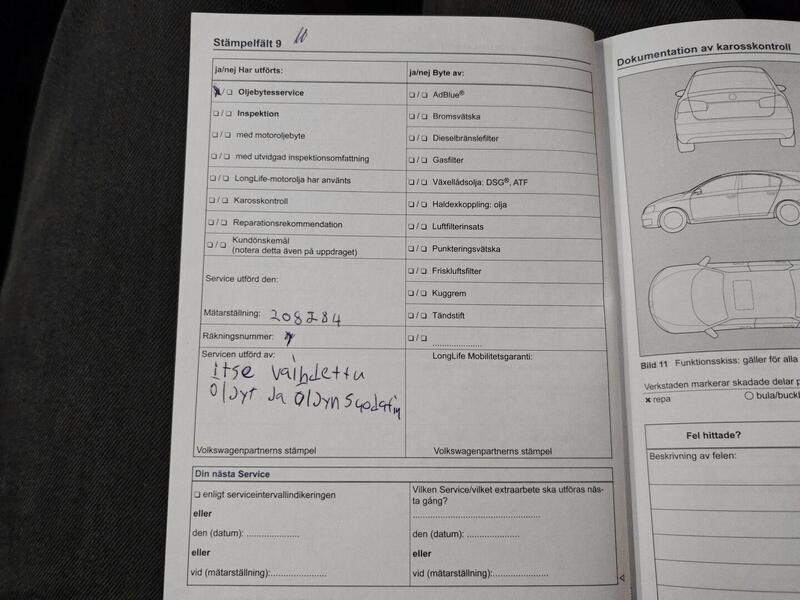 Stämpelfält 9
ja/nej Har utförts:
☐/☐ Oljebytesservice
☐/☐ Inspektion
☐/☐ med motoroljebyte
☐/☐ med utvidgad inspektionsomfattning
☐/☐ LongLife-motorolja har använts
☐/☐ Karosskontroll
☐/☐ Reparationsrekommendation
☐/☐ Kundönskemål
(notera detta även på uppdraget)
Service utförd den:
Mätarställning: 208284
Räkningsnummer:
Servicen utförd av:
itse vaihdettu
öljyt ja öljynsuodatin
Volkswagenpartnerns stämpel
ja/nej Byte av:
☐/☐ AdBlue®
☐/☐ Bromsvätska
☐/☐ Dieselbränslefilter
☐/☐ Gasfilter
☐/☐ Växellådsolja: DSG®, ATF
☐/☐ Haldexkoppling: olja
☐/☐ Luftfilterinsats
☐/☐ Punkteringsvätska
☐/☐ Friskluftsfilter
☐/☐ Kuggrem
☐/☐ Tändstift
☐/☐ ....................
LongLife Mobilitetsgaranti:
Volkswagenpartnerns stämpel
Din nästa Service
☐ enligt serviceintervallindikeringen
eller
den (datum): ....................
eller
vid (mätarställning):....................
Vilken Service/vilket extraarbete ska utföras näs-
ta gång?
..................................................
den (datum): ....................
eller
vid (mätarställning):....................
Dokumentation av karosskontroll
Bild 11 Funktionsskiss: gäller för alla
Verkstaden markerar skadade delar
× repa ○ bula/buckl
Fel hittade?
Beskrivning av felen: